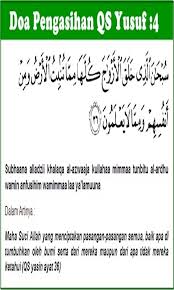 Doa Pengasihan QS Yusuf :4
سُبْحَٰنَ ٱلَّذِى خَلَقَ ٱلْأَزْوَٰجَ كُلَّهَا مِمَّا تُنۢبِتُ ٱلْأَرْضُ وَمِنْ
أَنفُسِهِمْ وَمِمَّا لَا يَعْلَمُونَ ٣٦
Subhaana alladzii khalaqa al-azwaaja kullahaa mimmaa tunbitu al-ardhu
wamin anfusihim wamimmaa laa ya'lamuuna
Dalam Artinya :
Maha Suci Allah yang menciptakan pasangan-pasangan semua, baik apa di
tumbuhkan oleh bumi serta dari mereka maupun dari apa tidak mereka
ketahui (QS yasin ayat 36)